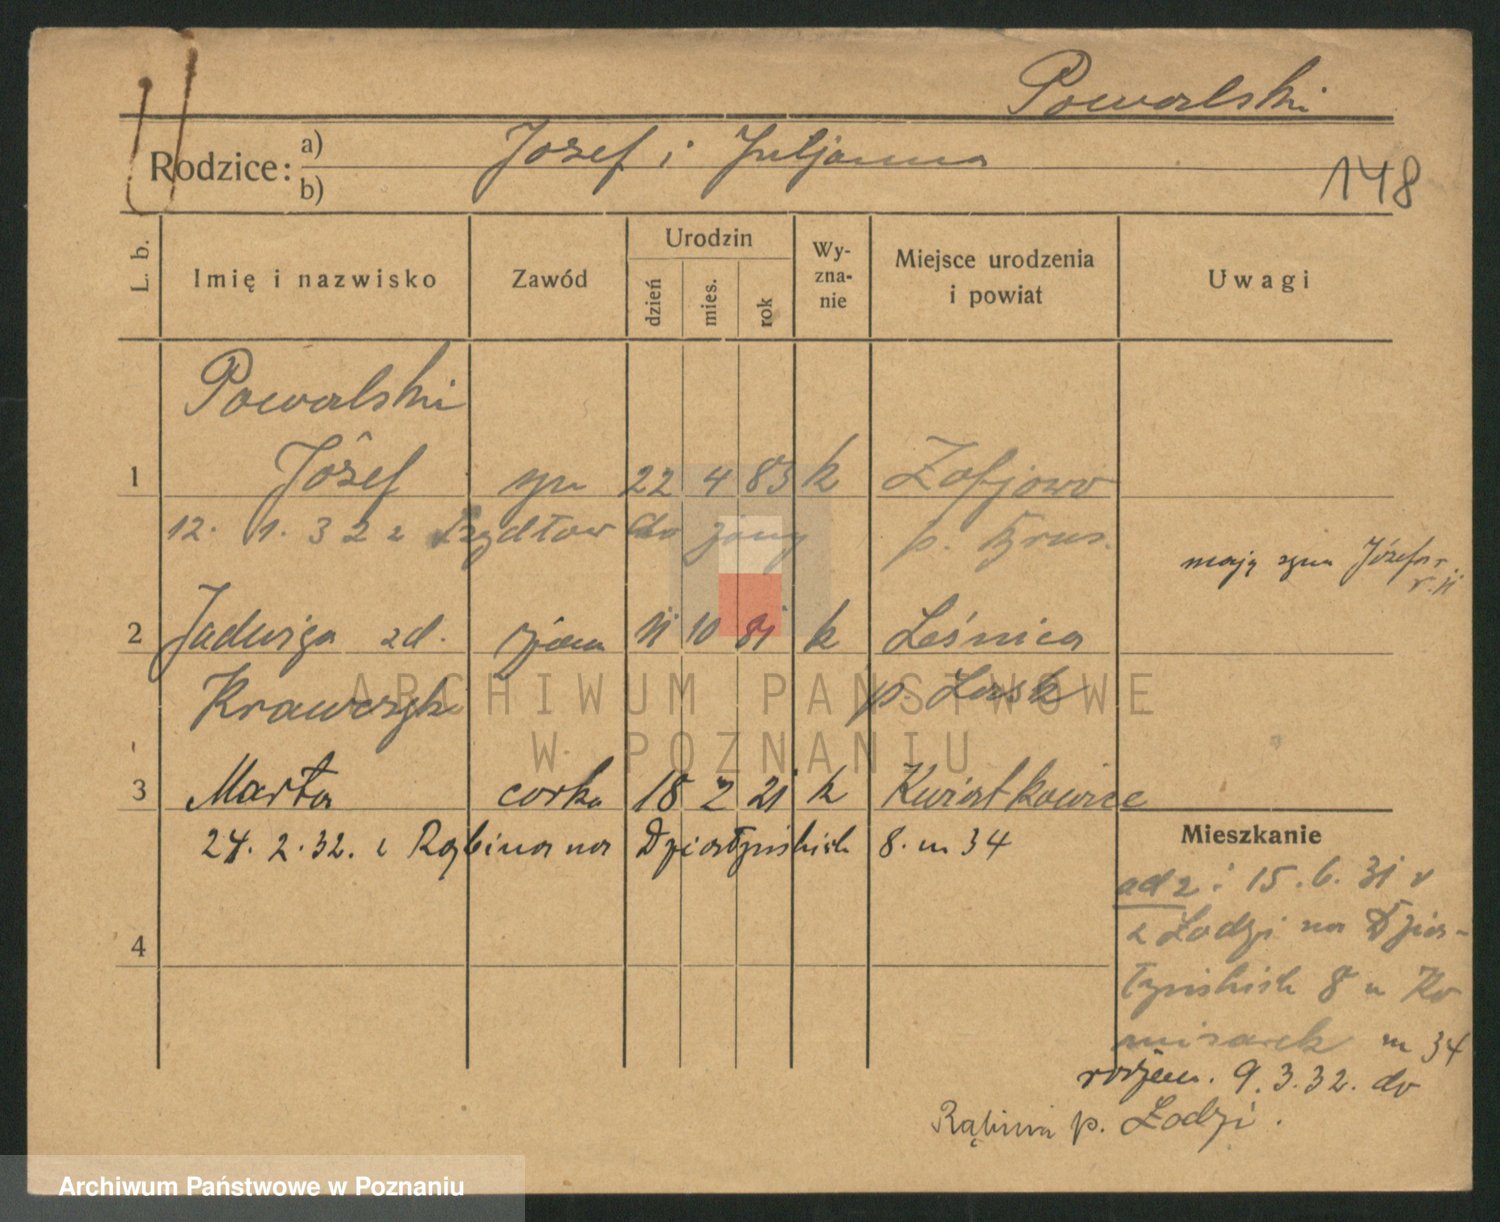 Powalski
Rodzice: a) Józef i Juljanna
b)
148
L. b. Imię i nazwisko Zawód Urodzin dzień mies. rok Wy-zna-nie Miejsce urodzenia i powiat Uwagi
Powalski
1 Józef 22 4 83 k Zofjowo
12. 1. 32 z do żony p.
mają syna Józefa
2 Jadwiga zd. żona 11 10 81 k Leśnica
Krawczyk p. Łask
ARCHIWUM PAŃSTWOWE
W POZNANIU
3 Marta corka 18 2 21 k Kwiatkowice
24. 2. 32. z Rąbina na Działyńskich 8. m 34
Mieszkanie
ad 2 i 15. 6. 31 r
z Łodzi na Dzia-
łyńskich 8 u Ko
4
misarek m 34
rodzem. 9. 3. 32. do
Rąbinia p. Łodzi.
Archiwum Państwowe w Poznaniu